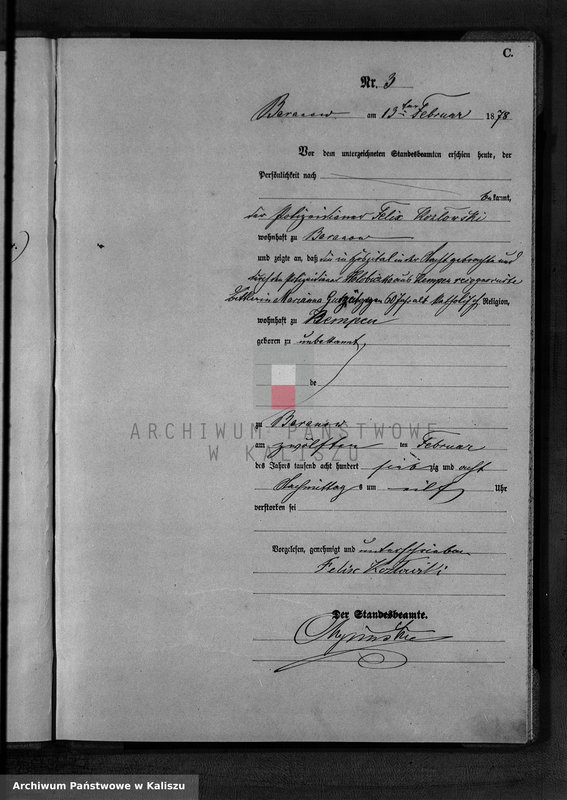 C.
Nr. 3
Baranow am 13ten Februar 1878
Vor dem unterzeichneten Standesbeamten erschien heute, der
Persönlichkeit nach
bekannt,
der Polizeidiener Felix Kozlowski
wohnhaft zu Baranow
und zeigte an, daß die in Hospital in der Nacht gebrachte und
durch den Polizeidiener aus Kempen recognoscirte
Bettlerin Marianna 60 Jahr alt katholisch Religion,
wohnhaft zu Kempen
geboren zu unbekannt,
de
zu Baranow
am zwölften ten Februar
des Jahres tausend acht hundert siebzig und acht
Nachmittag s um eilf Uhr
verstorben sei
Vorgelesen, genehmigt und unterschrieben
Felix Kozlowski
Der Standesbeamte.
ARCHIWUM PAŃSTWOWE
W KALISZU
Archiwum Państwowe w Kaliszu